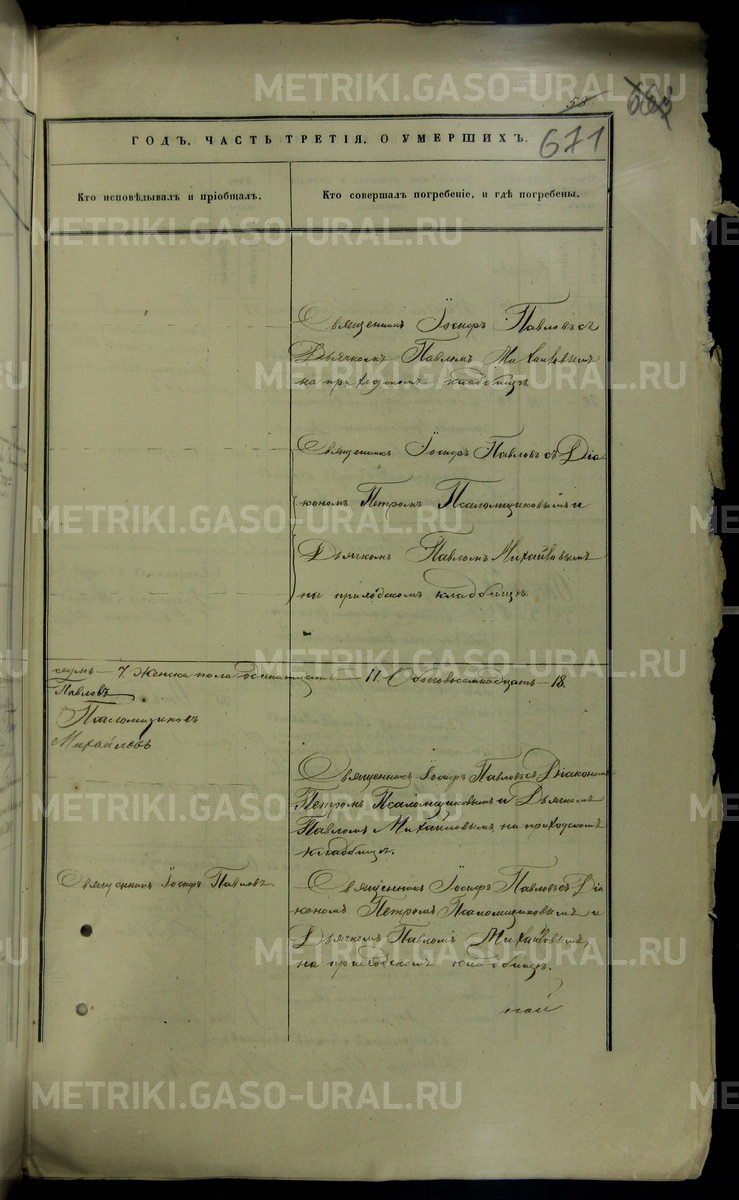 58
671
ГОДЪ. ЧАСТЬ ТРЕТІЯ, О УМЕРШИХЪ.
Кто исповѣдывалъ и пріобщалъ.
Кто совершалъ погребеніе, и гдѣ погребены.
Священникъ Іосифъ Павловъ съ
Дьячкомъ Павломъ Михайловымъ
на приходскомъ кладбищѣ.
Священникъ Іосифъ Павловъ съ Діа
кономъ Петромъ Псаломщиковымъ и
Дьячкомъ Павломъ Михайловымъ
на приходскомъ кладбищѣ.
седмь — 7. Женска пола одинатцать — 11 — Обоего восемнадцать — 18.
Павловъ
Псаломщиковъ
Михайловъ
Священникъ Іосифъ Павловъ съ Діакономъ
Петромъ Псаломщиковымъ и Дьячкомъ
Павломъ Михайловымъ, на приходскомъ
кладбищѣ.
Священникъ Іосифъ Павловъ.
Священникъ Іосифъ Павловъ съ Діа
кономъ Петромъ Псаломщиковымъ и
Дьячкомъ Павломъ Михайловымъ,
на приходскомъ кладбищѣ.
METRIKI.GASO-URAL.RU